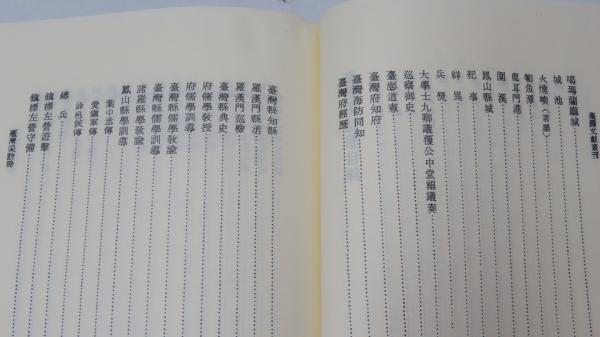 臺灣文獻叢刊
噶瑪蘭廳城
城池
火燒嶼(舊屬)
鯽魚潭
鹿耳門港
圍溪
鳳山縣城
祀事
祥異
兵燹
大學士九卿議覆公中堂福議奏
巡察御史
臺澎道
臺灣府知府
臺灣海防同知
臺灣府經歷
臺灣縣知縣
羅漢門縣丞
羅漢門巡檢
臺灣縣典史
府儒學教授
府儒學訓導
臺灣縣儒學教諭
臺灣縣儒學訓導
諸羅縣學教諭
鳳山縣學訓導
葉中丞傳
愛鎮軍傳
薛邑侯傳
總兵
鎮標左營遊擊
鎮標左營守備
臺灣采訪冊